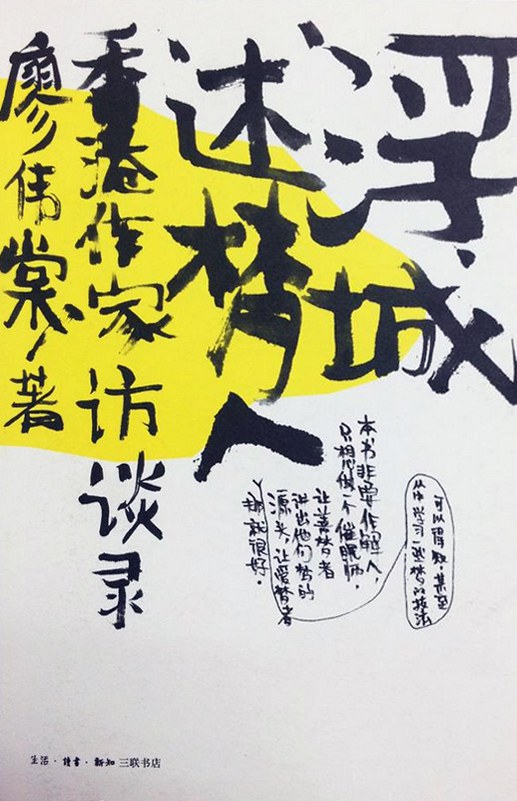 浮城
述梦人
香港作家访谈录
廖伟棠 著
可以得 甚至
从中学习 梦的技法
本书非要作解人,
只想做一个催眠师,
让善梦者
讲出他们梦的
源头,让爱梦者
那就很好。
生活·读书·新知 三联书店